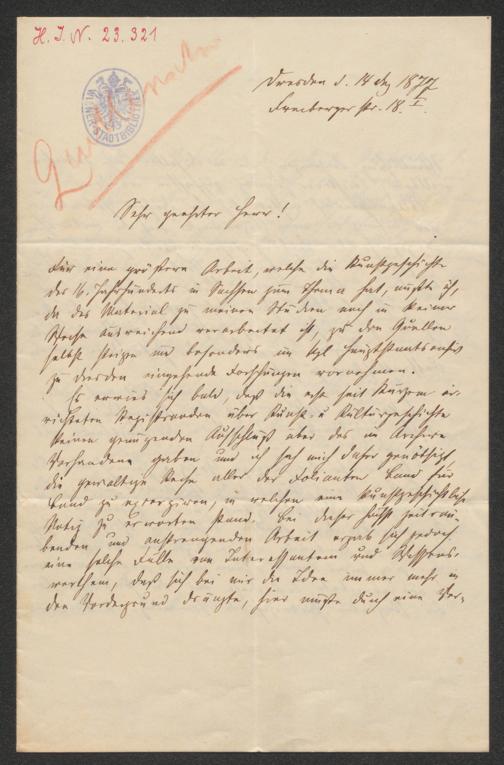 H. I. N. 23.321
WIENER STADTBIBLIOTHEK
Dresden d. 14 Dez 1877
Freiberger Str. 18. I.
Sehr geehrter Herr!
Für eine größere Arbeit, welche die Kunstgeschichte
des 16. Jahrhunderts in Sachsen zum Thema hat, mußte ich,
da das Material zu meinen Studien noch in keiner
Weise ausreichend verarbeitet ist, zu den Quellen
selbst steigen und besonders im kgl Hauptstaatsarchiv
zu Dresden eingehende Forschungen vornehmen.
Es erwies sich bald, daß die erst seit Kurzem er-
richteten Registranden über Kunst- u Kulturgeschichte
keinen genügenden Aufschluß über das im Archive
Vorhandene geben und ich sah mich daher genöthigt,
die gewaltige Reihe aller der Folianten Band für
Band zu excerpiren, in welchen eine kunstgeschichtliche
Notiz zu erwarten stand. Bei dieser höchst zeitrau-
benden und anstrengenden Arbeit ergab sich jedoch
eine solche Fülle von Interessantem und Wissens-
werthem, daß sich bei mir die Idee immer mehr in
den Vordergrund drängte, hier müßte durch eine Ver-